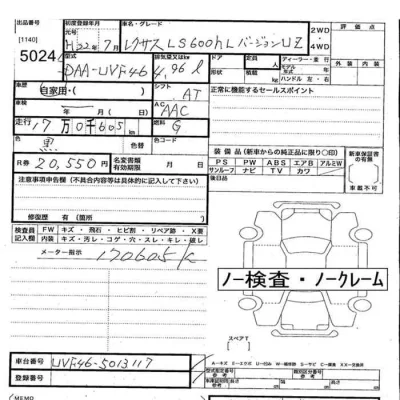 出品番号 初度登録年月 車名・グレード 評価点
[1140] 元号 H22年7月 レクサス LS600hL バージョンUZ 2WD・4WD
5024 型式 排気量又はkW ドア 形状 ディーラー・並行 外装 内装
DAA-UVF46 4.96ℓ 定員 積載 モデル年式 ハンドル 左・右
車歴 自家用・( ) シフト AT 正常に機能するセールスポイント
車検 年 月 AAC
走行 17万0千605 km 燃料 G
色 黒 色コード
R券 20,550円 名変有効期限 月 日 装備品(新車からの純正品に限り○印) 新車保証書の有無
PS PW ABS エアB アルミW 有
サンルーフ ナビ TV カワ
注意事項申告欄(不具合内容等は具体的に記入して下さい) 後日品 車載不可
修復歴 有(箇所
検査員記入欄 FW キズ・飛石・ヒビ割・リペア跡・X要
内装 キズ・汚レ・コゲ・穴・スレ・キレ・破レ
メーター指示 170605K
ノー検査・ノークレーム
スペアT
車台番号 UVF46-5013117
登録番号
(MEMO